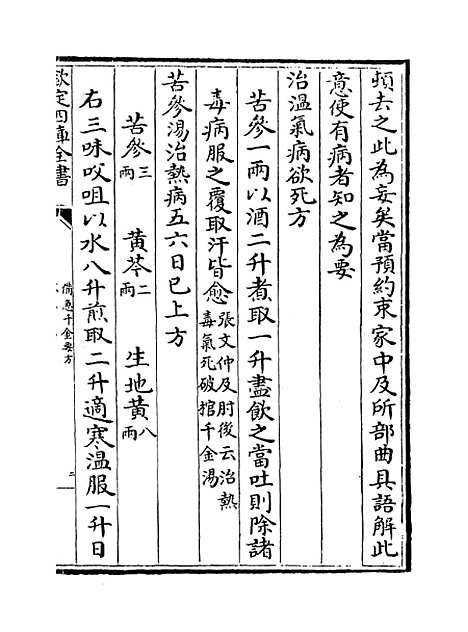 頓去之此為妄矣當預約束家中及所部曲具語解此
意使有病者知之為要
治温氣病欲死方
苦參一兩以酒二升煮取一升盡飲之當吐則除諸
毒病服之覆取汗皆愈張文仲及肘後云治熱
毒氣死破棺千金湯
苦參湯治熱病五六日已上方
苦參三兩 黄芩二兩 生地黄八兩
右三味㕮咀以水八升煎取二升適寒温服一升日
欽定四庫全書
備急千金要方